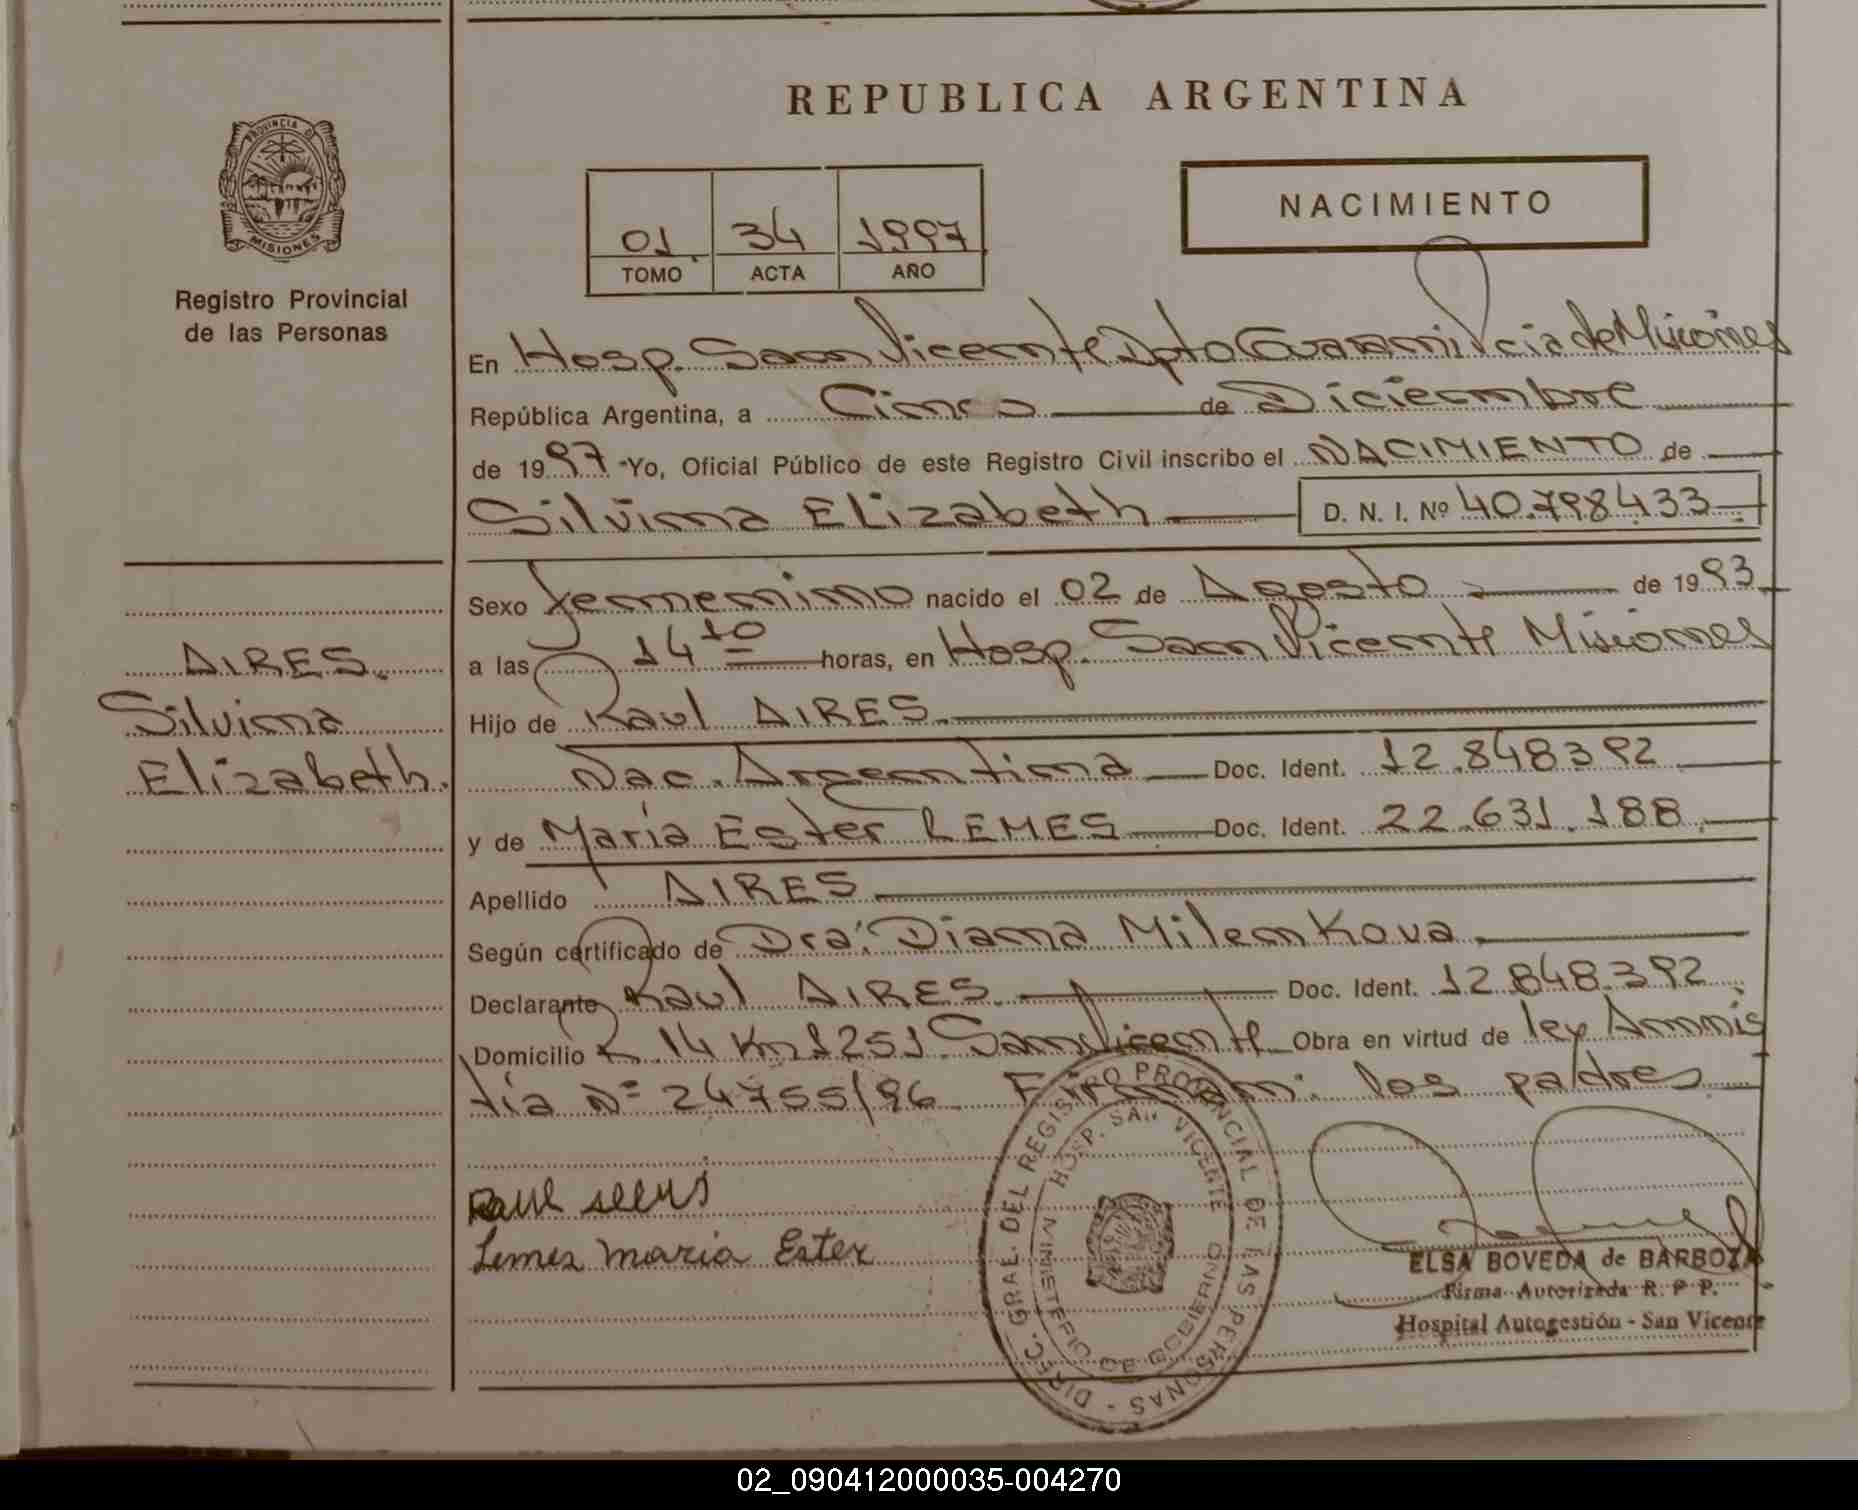 REPUBLICA ARGENTINA
PROVINCIA DE
MISIONES
Registro Provincial
de las Personas
NACIMIENTO
01 34 1997
TOMO ACTA AÑO
En Hosp. San Vicente Dpto Guarani Pcia de Misiones
República Argentina, a Cinco de Diciembre
de 1997 -Yo, Oficial Público de este Registro Civil inscribo el NACIMIENTO de
Silvina Elizabeth D. N. I. Nº 40.798433
Sexo femenino nacido el 02 de Agosto de 1993
a las 14 10 horas, en Hosp. San Vicente Misiones
AIRES
Silvina
Elizabeth.
Hijo de Raul AIRES
Nac. Argentina Doc. Ident. 12.848392
y de María Ester LEMES Doc. Ident. 22.631.188
Apellido AIRES
Según certificado de Dra. Diana Milenkova
Declarante Raul AIRES Doc. Ident. 12.848.392
Domicilio R 14 Km 1251 San Vicente Obra en virtud de ley Amnis
tía Nº 24755/96 Firman: los padres
Raul
Lemes maria Ester
DIREC. GRAL. DEL REGISTRO PROVINCIAL DE LAS PERSONAS -
HOSP. SAN VICENTE
MINISTERIO DE GOBIERNO
ELSA BOVEDA de BARBOZA
Firma Autorizada R. P. P.
Hospital Autogestión - San Vicente
02_090412000035-004270